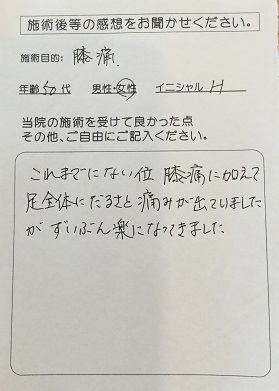 施術後等の感想をお聞かせください。
施術目的: 膝痛
年齢 50代 男性・女性 イニシャル H
当院の施術を受けて良かった点
その他、ご自由にご記入ください。
これまでにない位 膝痛に加えて
足全体にだるさと痛みが出ていました
が ずいぶん楽になってきました